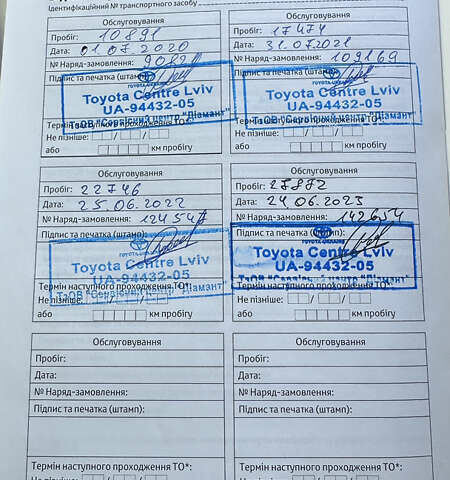 Ідентифікаційний № транспортного засобу
Обслуговування
Пробіг: 10891
Дата: 01.07.2020
№ Наряд-замовлення: 90820
Підпис та печатка (штамп):
Toyota Centre Lviv
UA-94432-05
ТзОВ "Сервісний центр "Діамант"
Термін наступного проходження ТО*:
Не пізніше:
або км пробігу
Обслуговування
Пробіг: 17474
Дата: 31.07.2021
№ Наряд-замовлення: 109169
Підпис та печатка (штамп):
Toyota Centre Lviv
UA-94432-05
ТзОВ "Сервісний центр "Діамант"
Термін наступного проходження ТО*:
Не пізніше:
або км пробігу
Обслуговування
Пробіг: 22746
Дата: 25.06.2022
№ Наряд-замовлення: 124547
Підпис та печатка (штамп):
Toyota Centre Lviv
UA-94432-05
ТзОВ "Сервісний центр "Діамант"
Термін наступного проходження ТО*:
Не пізніше:
або км пробігу
Обслуговування
Пробіг: 27872
Дата: 24.06.2023
№ Наряд-замовлення: 142654
Підпис та печатка (штамп):
TOYOTA-UKRAINE
Toyota Centre Lviv
UA-94432-05
ТзОВ "Сервісний центр "Діамант"
Термін наступного проходження ТО*:
Не пізніше:
або км пробігу
Обслуговування
Пробіг:
Дата:
№ Наряд-замовлення:
Підпис та печатка (штамп):
Термін наступного проходження ТО*:
Обслуговування
Пробіг:
Дата:
№ Наряд-замовлення:
Підпис та печатка (штамп):
Термін наступного проходження ТО*: